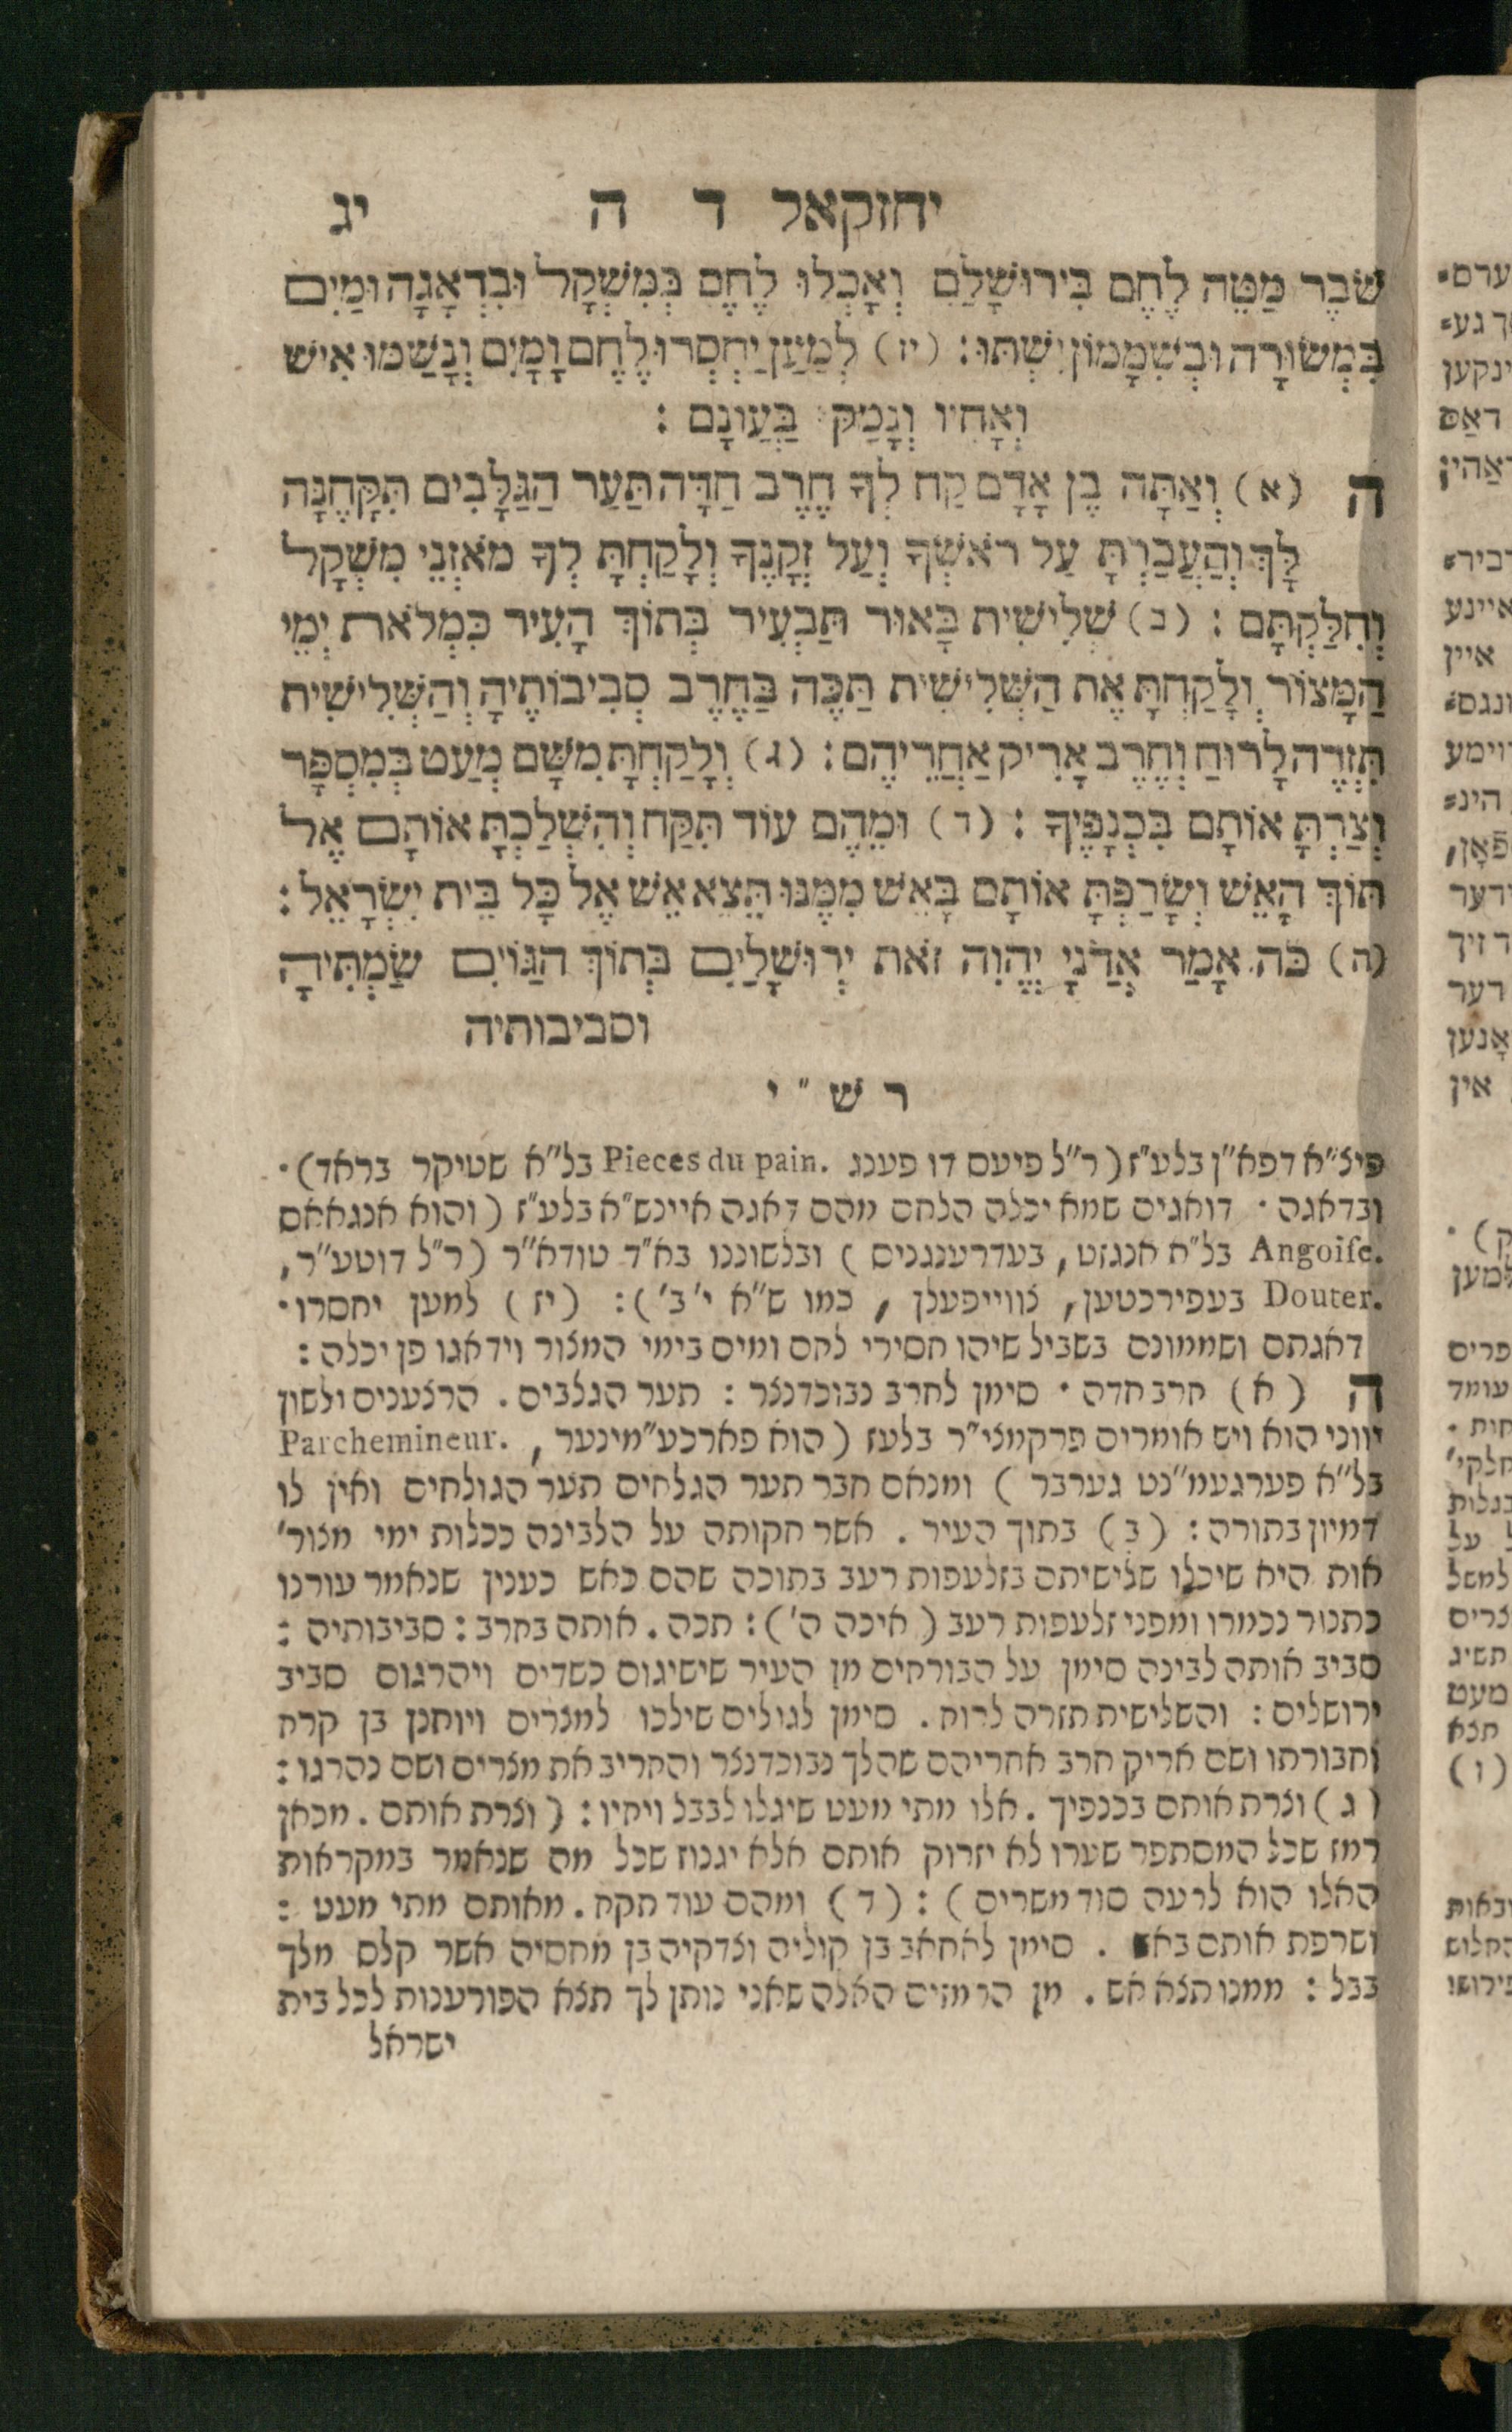 יחזקאל ד ה יג
שֹׁבֵר מַטֵּה לֶחֶם בִּירוּשָׁלַםִ וְאָכְלוּ לֶחֶם בְּמִשְׁקָל וּבִדְאָגָה וּמַיִם
בִּמְשׂוּרָה וּבְשִׁמָמוֹן יִשְׁתּוּ: (יז) לְמַעַן יַחְסְרוּ לֶחֶם וָמָיִם וְנָשַׁמּוּ אִישׁ
וְאָחִיו וְנָמַקּוּ בַּעֲוֹנָם :
ה (א) וְאַתָּה בֶן אָדָם קַח לְךָ חֶרֶב חַדָּה תַּעַר הַגַּלָּבִים תִּקָּחֶנָּה
לָּךְ וְהַעֲבַרְתָּ עַל רֹאשְׁךָ וְעַל זְקָנֶךָ וְלָקַחְתָּ לְךָ מֹאזְנֵי מִשְׁקָל
וְחִלַּקְתָּם : (ב) שְׁלִישִׁית בָּאוּר תַּבְעִיר בְּתוֹךְ הָעִיר כִּמְלֹאת יְמֵי
הַמָּצוֹר וְלָקַחְתָּ אֶת הַשְּׁלִישִׁית תַּכֶּה בַּחֶרֶב סְבִיבוֹתֶיהָ וְהַשְּׁלִישִׁית
תִּזְרֶה לָרוּחַ וְחֶרֶב אָרִיק אַחֲרֵיהֶם: (ג) וְלָקַחְתָּ מִשָּׁם מְעַט בְּמִסְפָּר
וְצַרְתָּ אוֹתָם בִּכְנָפֶיךָ : (ד) וּמֵהֶם עוֹד תִּקַּח וְהִשְׁלַכְתָּ אוֹתָם אֶל
תּוֹךְ הָאֵשׁ וְשָׂרַפְתָּ אוֹתָם בָּאֵשׁ מִמֶּנּוּ תֵצֵא אֵשׁ אֶל כָּל בֵּית יִשְׂרָאֵל:
(ה) כֹּה אָמַר אֲדֹנָי יֱהֹוִה זֹאת יְרוּשָׁלַיִם בְּתוֹךְ הַגּוֹיִם שַׂמְתִּיהָ
וסביבותיה
ר ש " י
פיצ"א דפא"ן בלע"ז (ר"ל פיעס דו פענג Pieces du pain. בל"א שטיקר בראד)·
ובדאגה · דואגים שמא יכלה הלחם מהם דאגה איינש"א בלע"ז (והוא אנגאאס
Angoise. בל"א אנגזט, בעדרענגניס) ובלשוננו בא"ד טודא"ר (ר"ל דוטע"ר,
Douter. בעפירכטען, צווייפעלן, כמו ש"א י' ב'): (יז) למען יחסרו·
דאגתם ושממונם בשביל שיהו חסירי לחם ומים בימי המצור וידאגו פן יכלה:
ה (א) חרב חדה · סימן לחרב נבוכדנצר : תער הגלבים. הרצענים ולשון
יווני הוא ויש אומרים פרקמני"ר בלעז (הוא פארכע"מינער, Parchemineur.
בל"א פערגעמ"נט גערבר) ומנחם חבר תער הגלחים תער הגולחים ואין לו
דמיון בתורה: (ב) בתוך העיר. אשר חקותה על הלבינה ככלות ימי מצור'
אות היא שיכלו שלישיתה בזלעפות רעב בתוכה שהם כאש כענין שנאמר עורנו
כתנור נכמרו ומפני זלעפות רעב (איכה ה'): תכה. אותה בחרב: סביבותיה:
סביב אותה לבינה סימן על הבורחים מן העיר שישיגום כשדים ויהרגום סביב
ירושלים: והשלישית תזרה לרוח. סימן לגולים שילכו למצרים ויוחנן בן קרח
וחבורתו ושם אריק חרב אחריהם שהלך נבוכדנצר והחריב את מצרים ושם נהרגו:
(ג) וצרת אותם בכנפיך. אלו מתי מעט שיגלו לבבל ויחיו: (וצרת אותם. מכאן
רמז שכל המסתפר שערו לא יזרוק אותם אלא יגנוז שכל מה שנאמר במקראות
האלו הוא לרעה סוד משרים): (ד) ומהם עוד תקח. מאותם מתי מעט:
ושרפת אותם באש. סימן לאחאב בן קוליה וצדקיה בן מחסיה אשר קלם מלך
בבל: ממנו תצא אש. מן הרמזים האלה שאני נותן לך תצא הפורענות לכל בית
ישראל